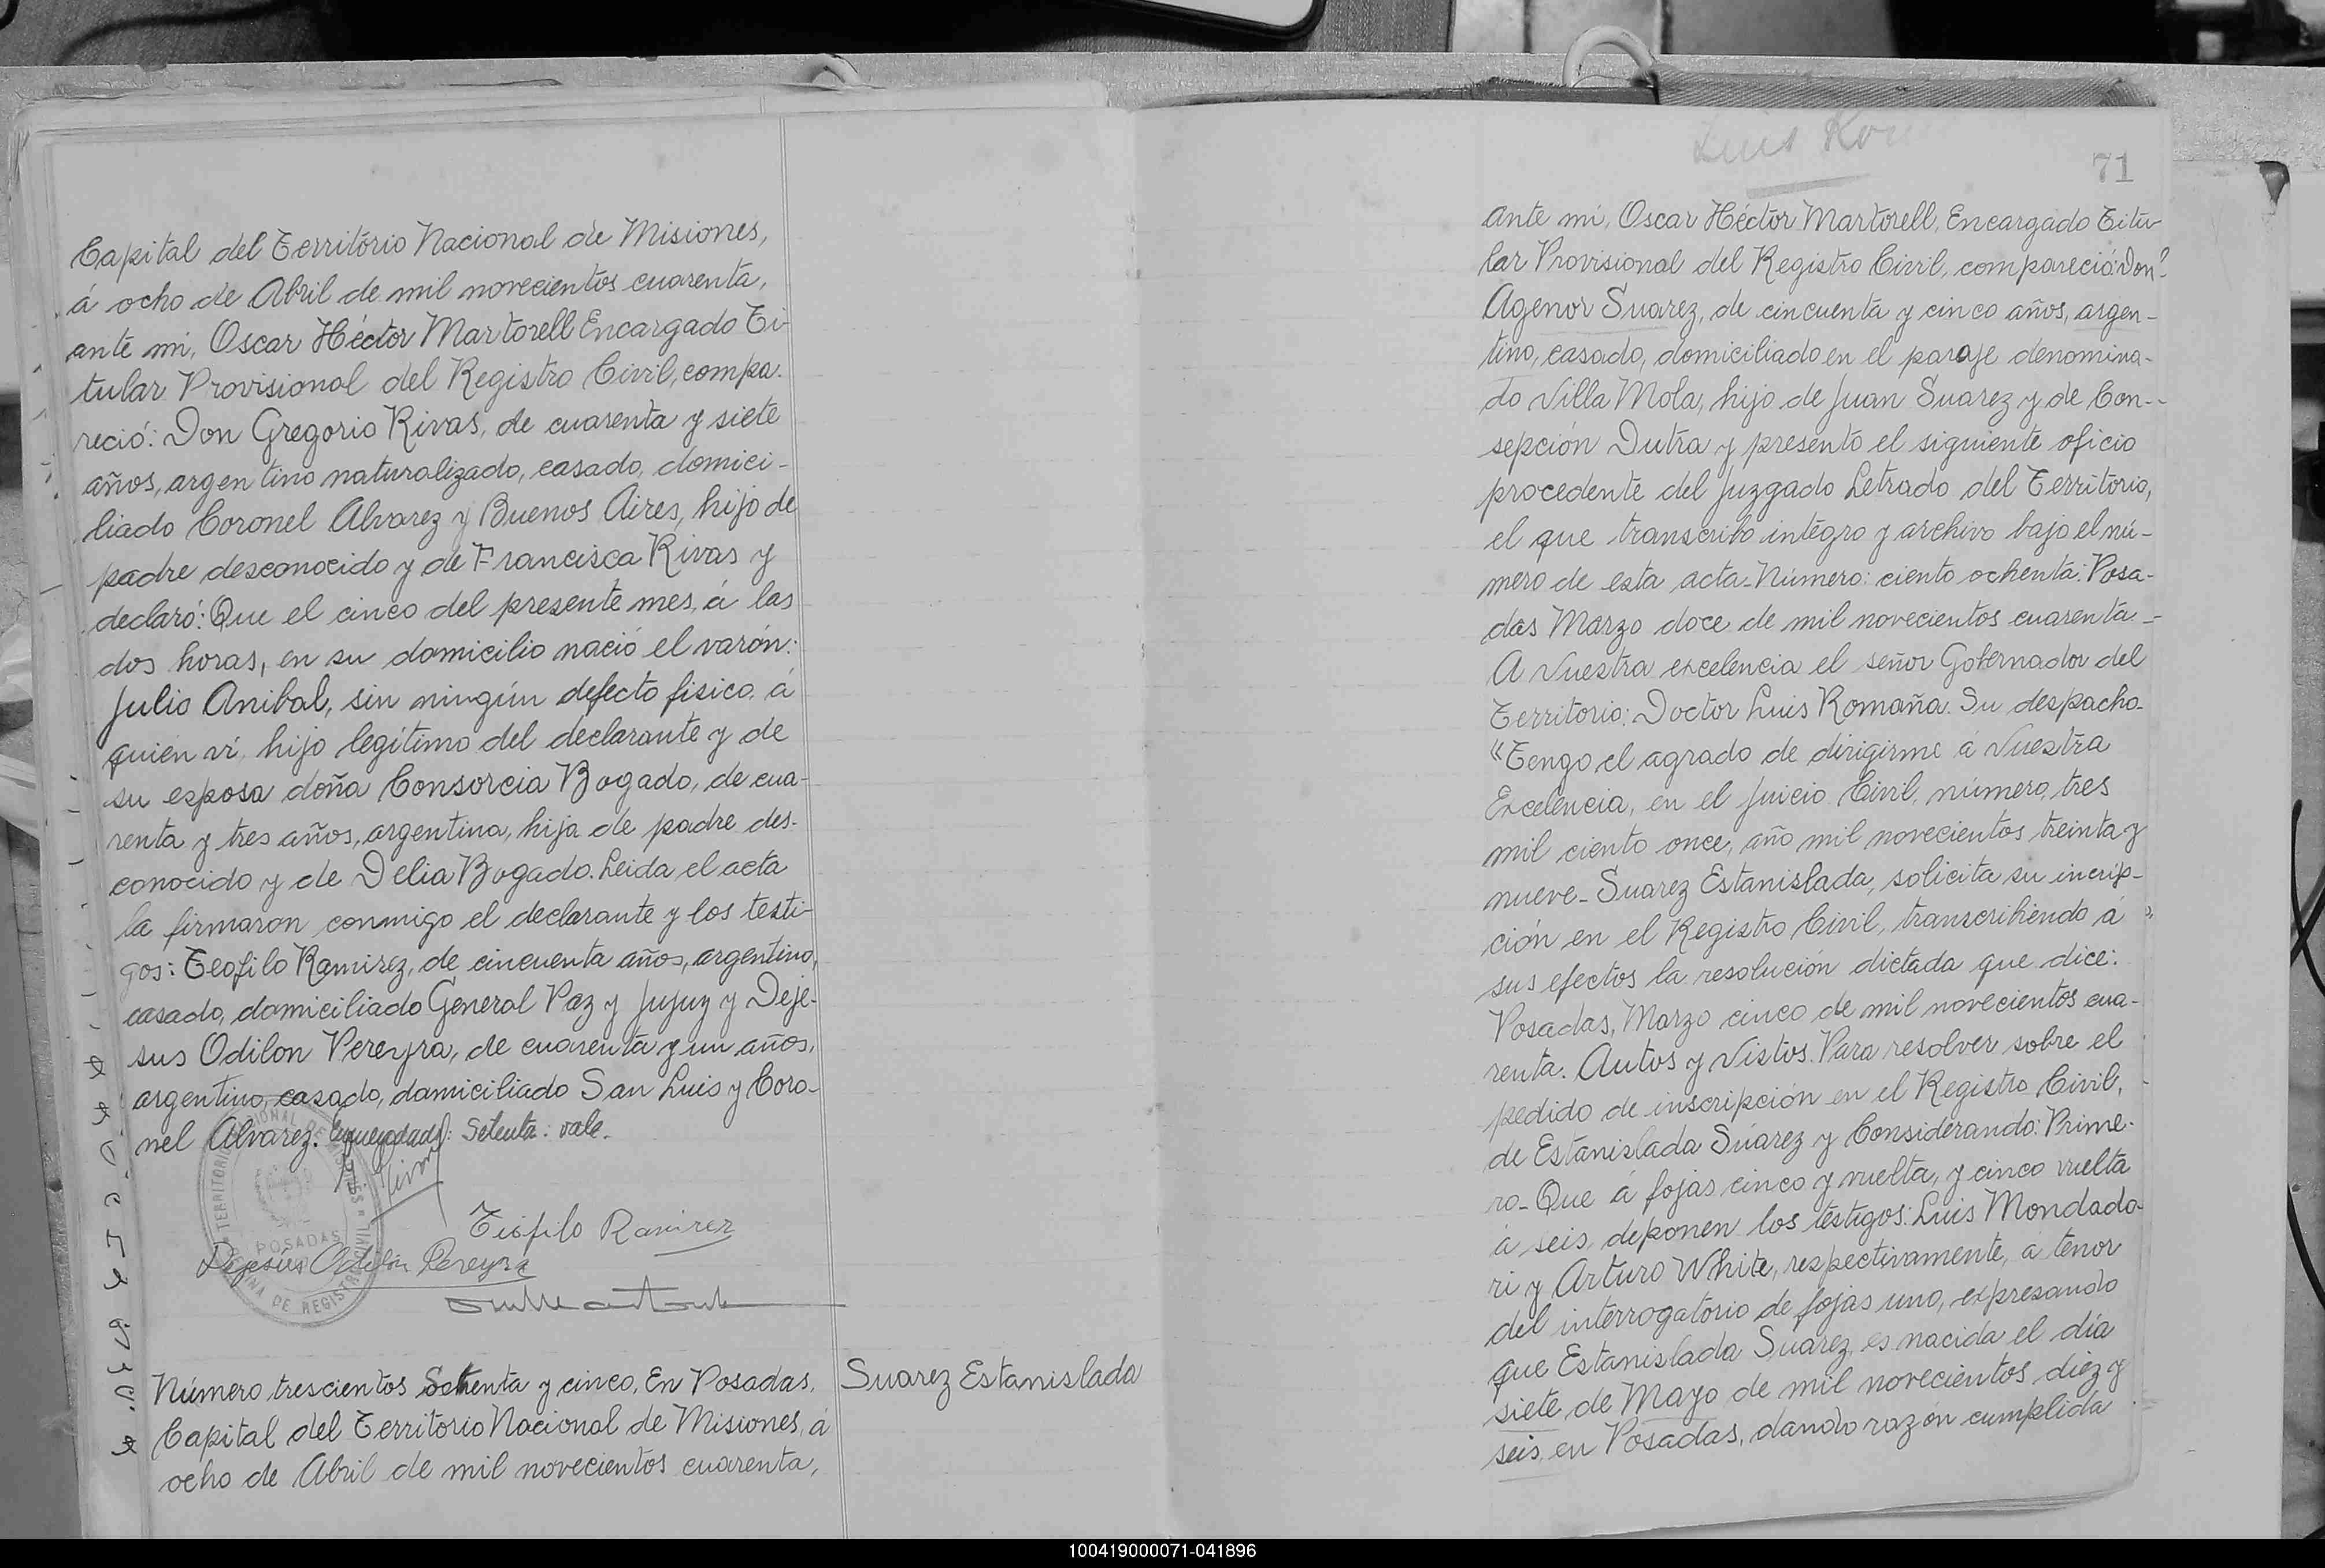 Capital del Territorio Nacional de Misiones,
á ocho de Abril de mil novecientos cuarenta,
ante mi, Oscar Héctor Martorell Encargado Ti-
tular Provisional del Registro Civil, compa-
reció: Don Gregorio Rivas, de cuarenta y siete
años, argentino naturalizado, casado, domici-
liado Coronel Alvarez y Buenos Aires, hijo de
padre desconocido y de Francisca Rivas y
declaró: Que el cinco del presente mes, á las
dos horas, en su domicilio nació el varón:
Julio Anibal, sin ningún defecto fisico, á
quien ví, hijo legítimo del declarante y de
su esposa doña Consorcia Bogado, de cua-
renta y tres años, argentina, hija de padre des-
conocido y de Delia Bogado. Leida el acta
la firmaron conmigo el declarante y los testi-
gos: Teofilo Ramirez, de cincuenta años, argentino,
casado, domiciliado General Paz y Jujuy y Deje-
sus Odilon Pereyra, de cuarenta y un años,
argentino, casado, domiciliado San Luis y Coro-
nel Alvarez. Enmendado: Setenta: vale.
TERRITORIO NACIONAL DE MISIONES
POSADAS
OFICINA DE REGISTRO CIVIL
Teófilo Ramirez
Dejesús Odilón Pereyra
Número trescientos Setenta y cinco, En Posadas,
Capital del Territorio Nacional de Misiones, á
ocho de Abril de mil novecientos cuarenta,
Suarez Estanislada
Luis Rom
71
ante mi, Oscar Héctor Martorell, Encargado Titu-
lar Provisional del Registro Civil, compareció: Don:
Agenor Suarez, de cincuenta y cinco años, argen-
tino, casado, domiciliado en el paraje denomina-
do Villa Mola, hijo de Juan Suarez y de Con-
sepción Dutra y presento el siguiente oficio
procedente del Juzgado Letrado del Territorio,
el que transcribo intégro y archivo bajo el nú-
mero de esta acta-Número: ciento ochenta: Posa-
das Marzo doce de mil novecientos cuarenta-
A Vuestra excelencia el señor Gobernador del
Territorio: Doctor Luis Romaña. Su despacho-
"Tengo el agrado de dirigirme á Vuestra
Excelencia, en el Juicio Civil, número, tres
mil ciento once, año mil novecientos treinta y
nueve-Suarez Estanislada, solicita su incrip-
ción en el Registro Civil, transcribiendo á
sus efectos la resolución dictada que dice:
Posadas, Marzo cinco de mil novecientos cua-
renta. Autos y Vistos. Para resolver sobre el
pedido de inscripción en el Registro Civil,
de Estanislada Suarez y Considerando: Prime-
ro-Que á fojas cinco y vuelta, y cinco vuelta
á seis, deponen los testigos: Luis Mondado-
ri y Arturo White, respectivamente, á tenor
del interrogatorio de fojas uno, expresando
que Estanislada Suarez, es nacida el día
siete de Mayo de mil novecientos diez y
seis, en Posadas, dando razón cumplida
100419000071-041896